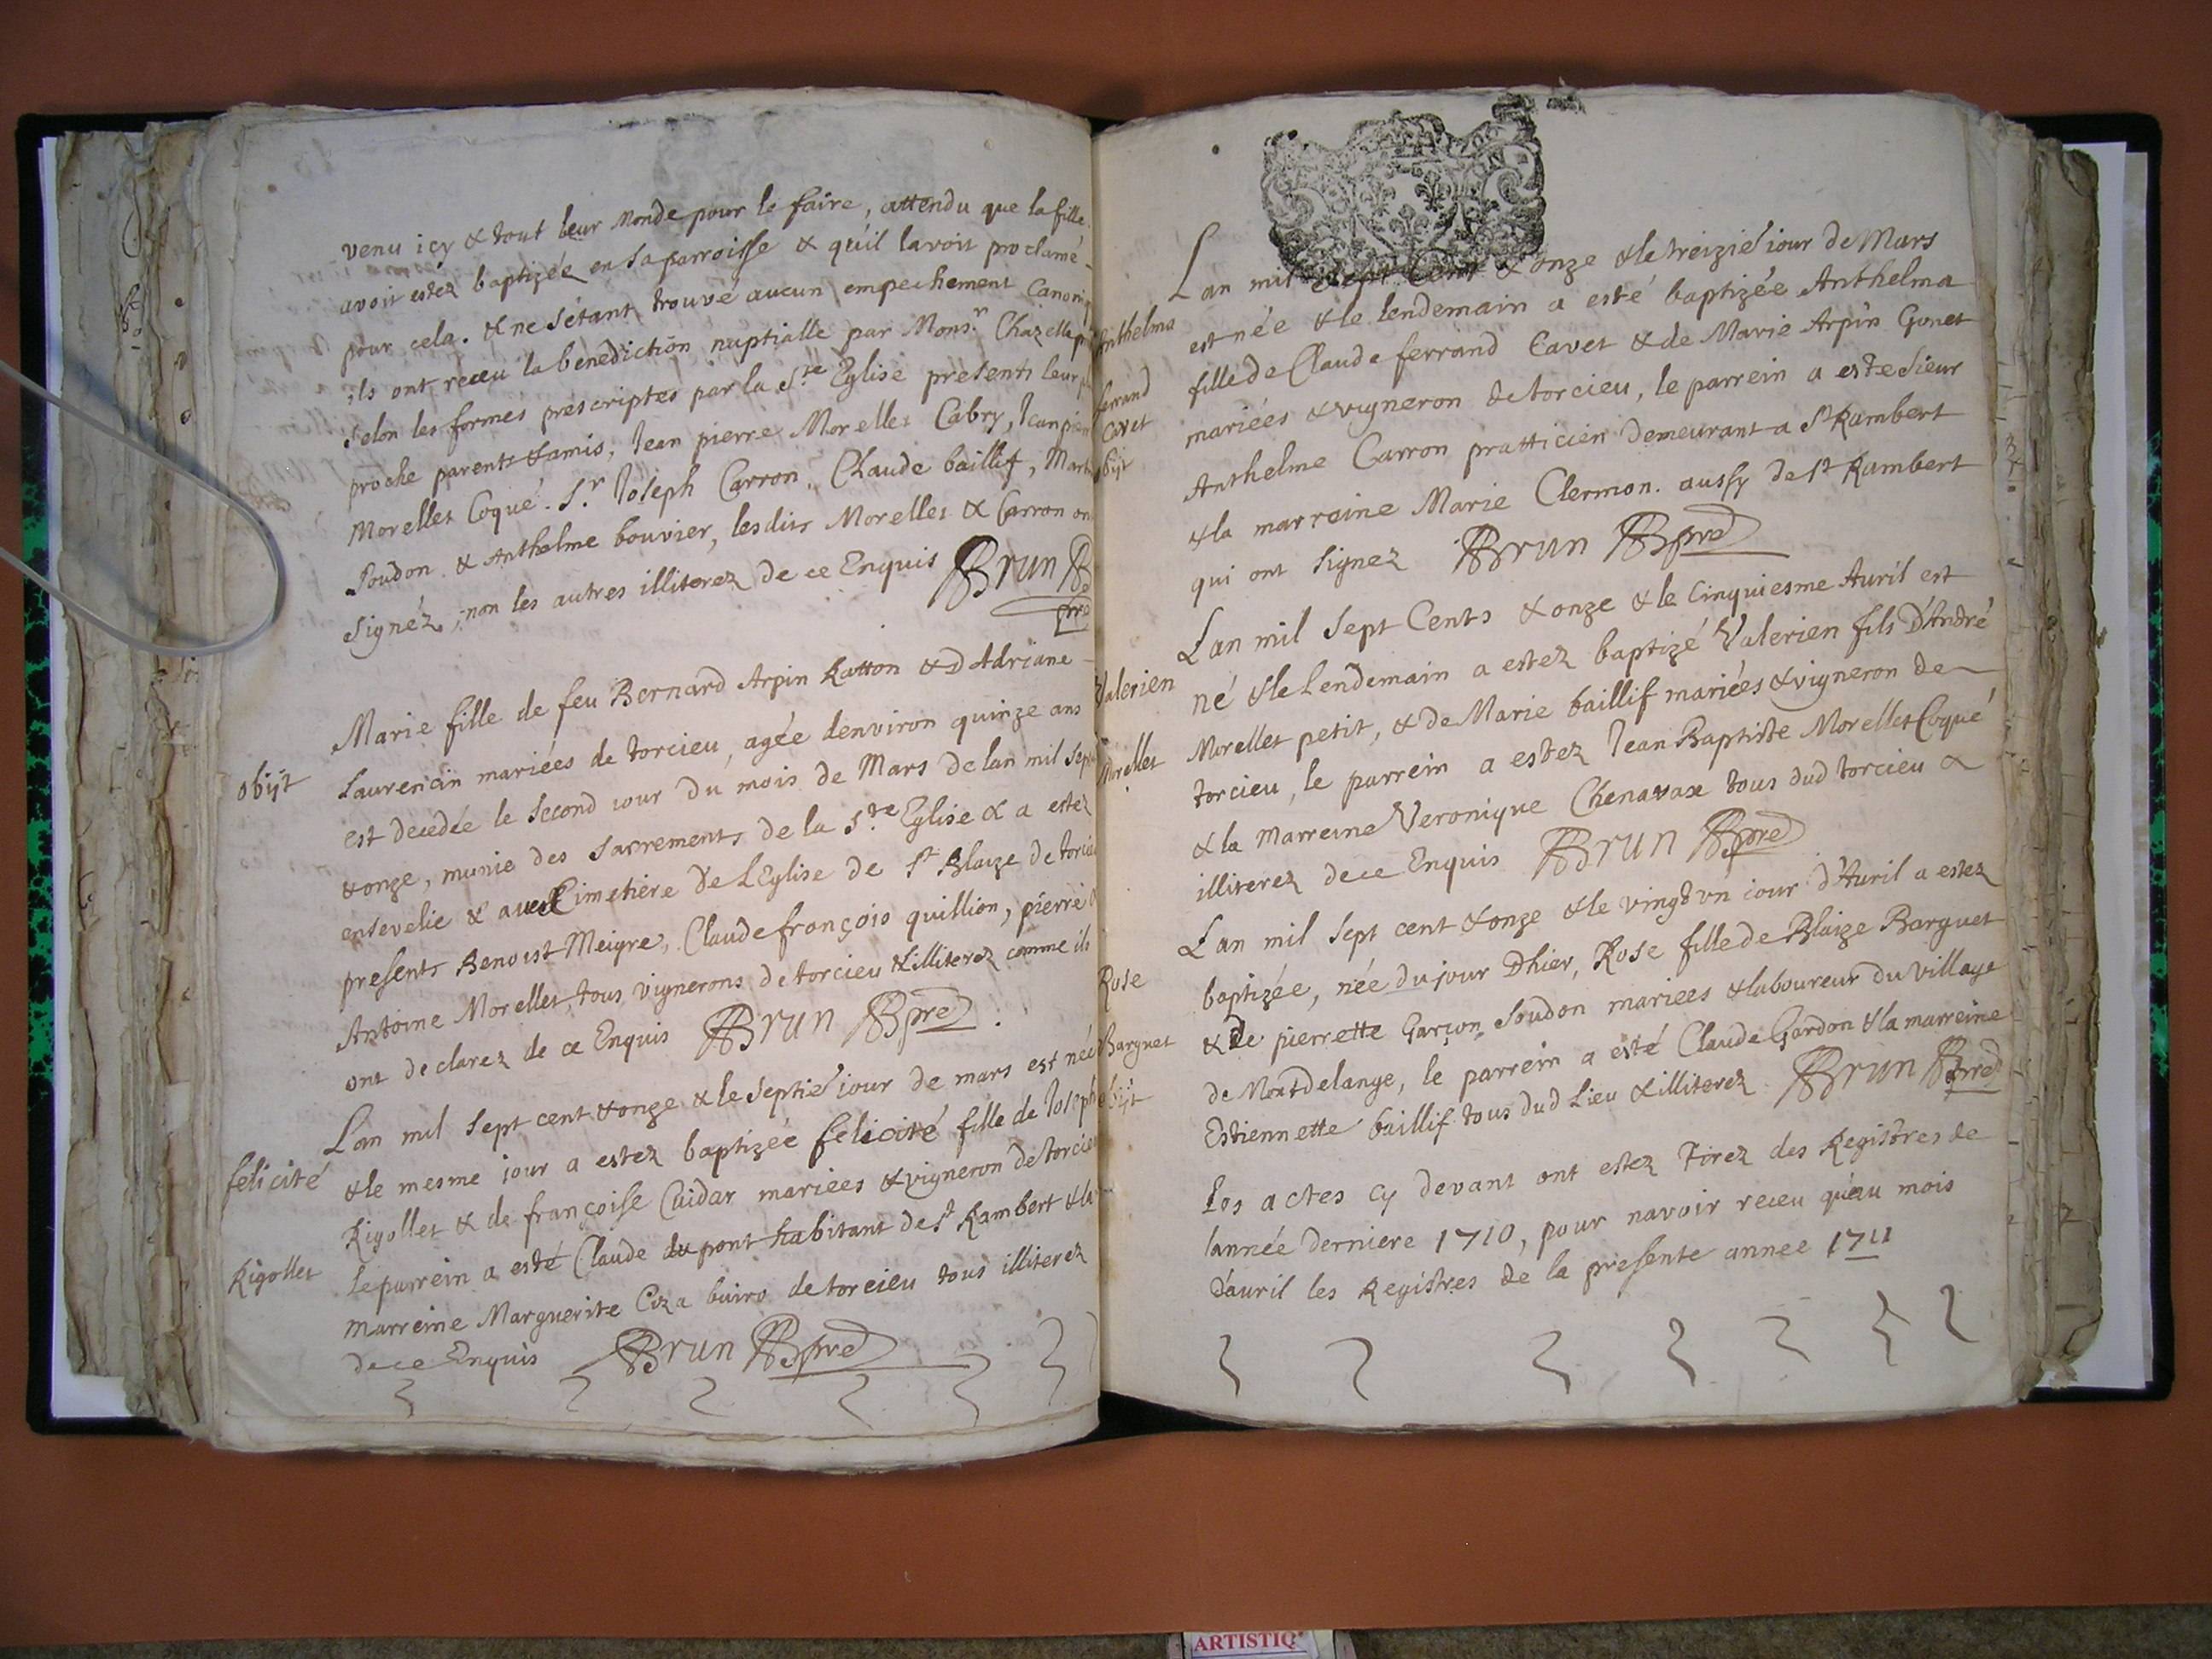 venu icy & tout leur Monde pour le faire, attendu que la fille
avoit estéz baptizée en sa parroisse & qu'il lavoit proclamé
pour cela. & ne s'étant trouvé aucun empechement
ils ont receu la benediction nuptialle par Mons.r Chazelle
selon les formes prescriptes par la S.te Eglise presents leur
proche parents & amis, Jean pierre Morellet Cabry,
Morellet Coqué. S.r Joseph Carron. Claude baillif,
Soudon & Anthelme bouvier, lesdits Morellet & Carron
signéz, non les autres illiterez de ce Enquis Brun
pre
Marie fille de feu Bernard Arpin Ratton & D'Adriane
obijt
Laurencin mariées de torcieu, agée denviron quinze ans
est decedée le second jour du mois de Mars de lan mil sept
& onze, munie des sacrements de la S.te Eglise & a estez
ensevelie & au Cimetiere de L'Eglise de St Blaize de
presents Benoist Meigre, Claude françois quillion, pierre
Antoine Morellet, tous vignerons de torcieu & illiterez comme ils
ont declarez de ce Enquis Brun pre
Lan mil sept cent & onze & le septie jour de mars est née
felicité
& le mesme jour a estez baptizée felicité fille de Joseph
Rigollet & de françoise Cuidar mariees & vigneron de torcieu
Rigollet
le parrein a esté Claude dupont habitant de St Rambert & la
marreine Marguerite buiro de torcieu tous illiterez
de ce Enquis Brun pre
Lan mil sept Cent & onze & le treizie jour de Mars
Anthelma
est née & le lendemain a esté baptizée Anthelma
fille de Claude ferrand Cavet & de Marie Arpin Gonet
ferrand
Cavet
mariées & vigneron de torcieu, le parrein a este Sieur
obijt
Anthelme Carron pratticien demeurant a St Rambert
& la marreine Marie Clermon. aussy de St Rambert
qui ont signez Brun pre
Lan mil sept Cents & onze & le Cinquiesme Auril est
Valerien
né & le Lendemain a estez baptizé Valerien fils D'André
Morellet
Morellet petit, & de Marie baillif mariées & vigneron de
torcieu, le parrein a estez Jean Baptiste Morellet Coqué
& la Marreine Veronique Chenavax tous dud torcieu &
illiterez de ce Enquis Brun pre
Lan mil sept cent & onze & le vingt vn jour d'Auril a estez
Rose
baptizée, née du jour Dhier, Rose fille de Blaize Barguet
Barguet
& de pierrette Garçon Soudon mariees & laboureur du village
obijt
de Montdelange, le parrein a esté Claude Gardon & la marreine
Estiennette baillif tous dud Lieu & illiterez Brun pre
Les actes cy devant ont estez Tirez des Registres de
lannée derniere 1710, pour navoir receu qu'au mois
d'auril les Registres de la presente annee 1711
ARTISTIQ